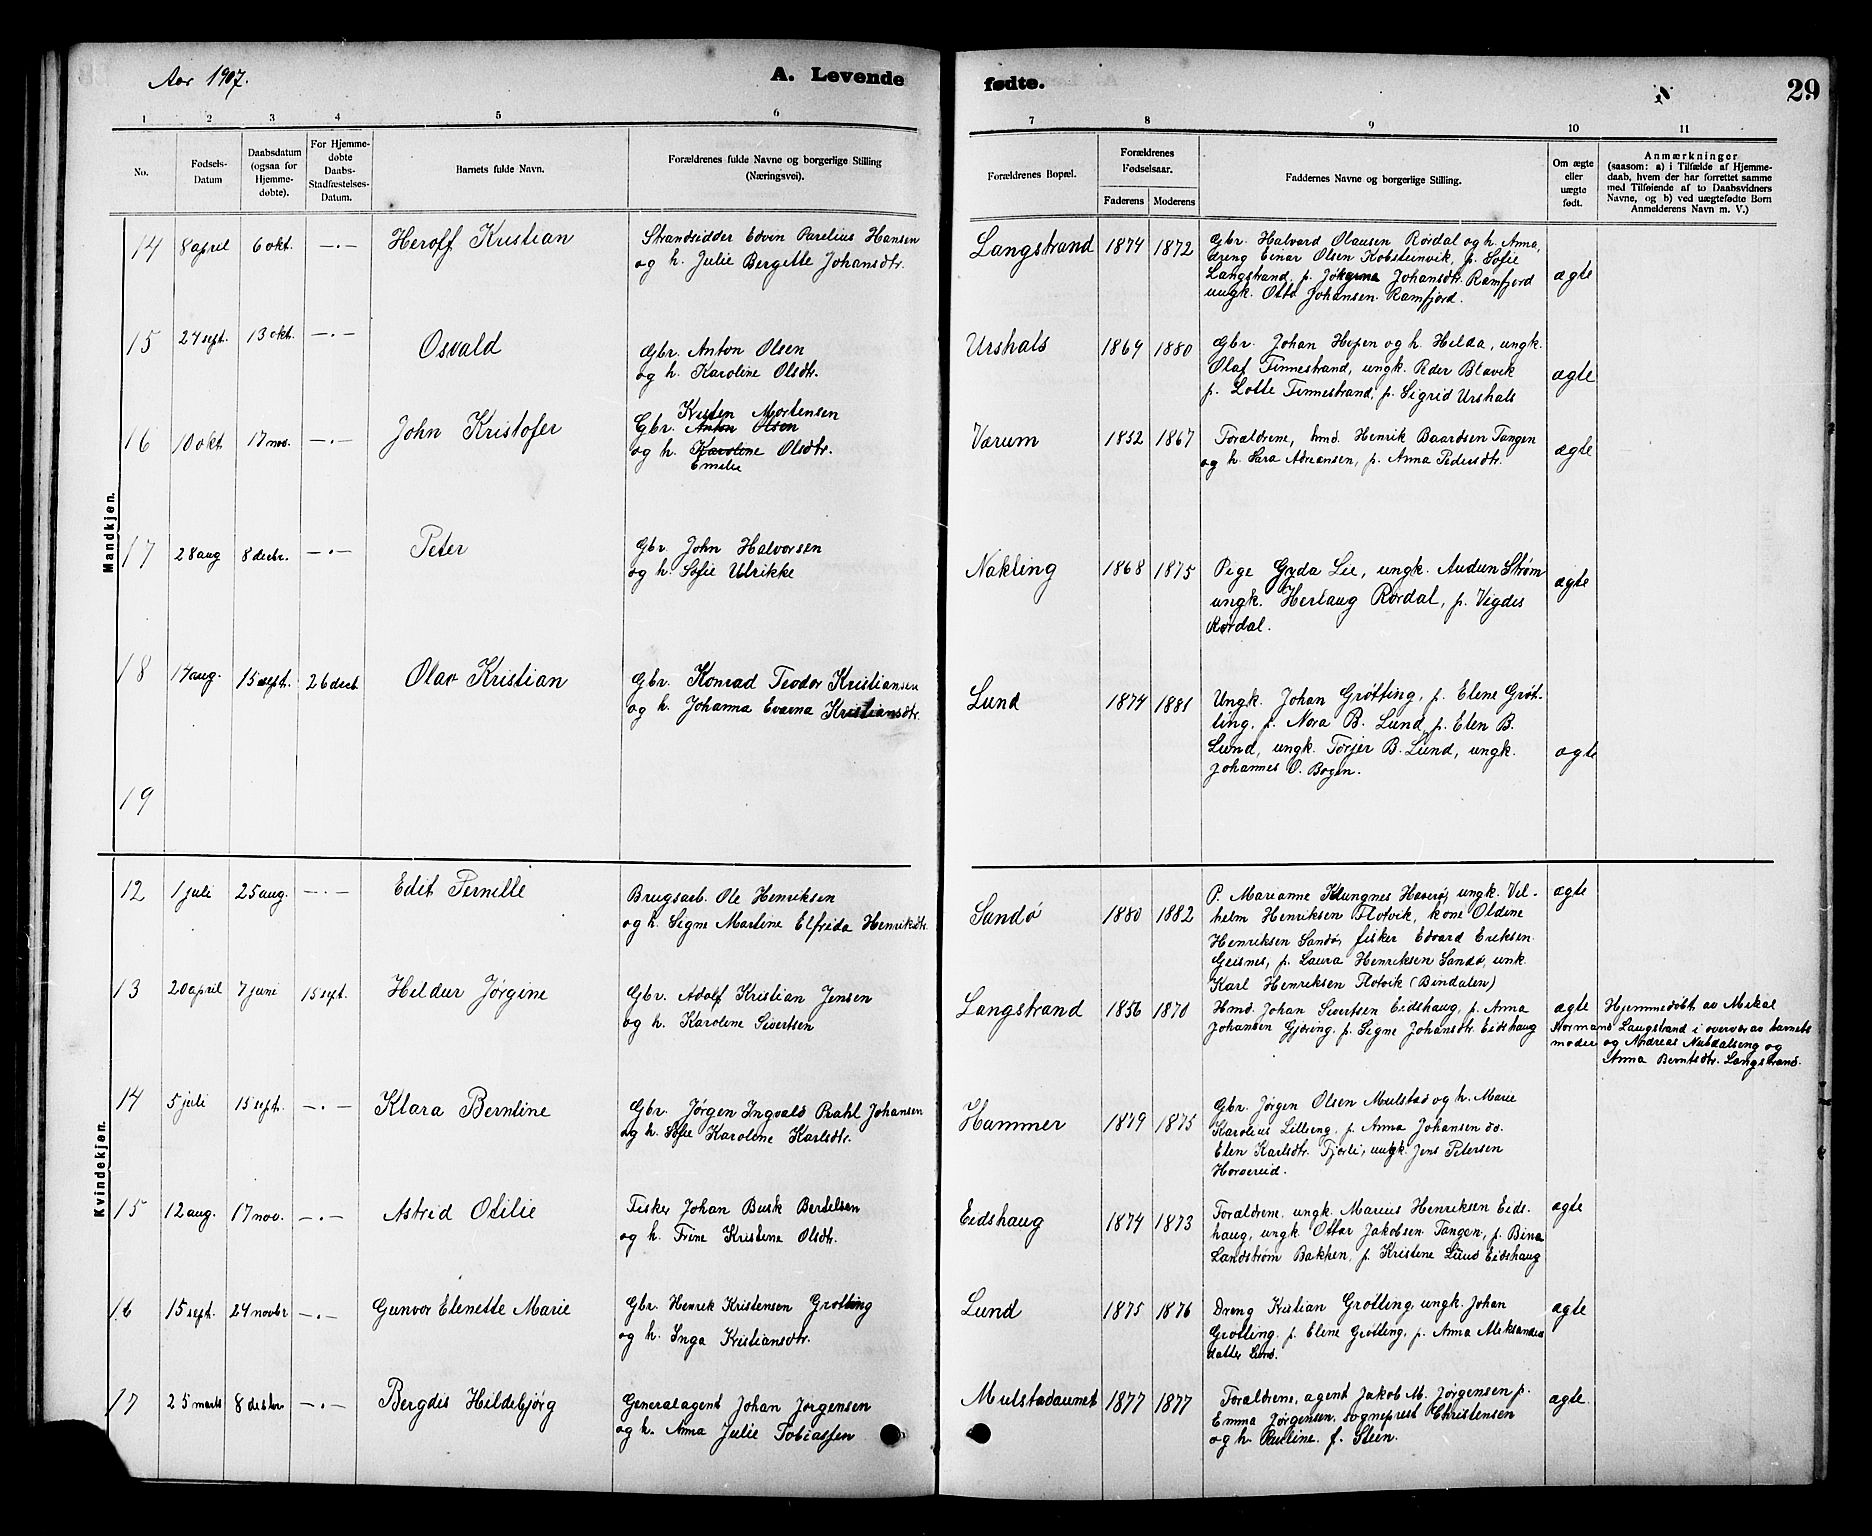 Aar 1907.
A. Levende fødte.
29
1 2 3 4 5 6 7 8 9 10 11
No.
Fødsels-Datum
Daabsdatum (ogsaa for Hjemmedøbte).
For Hjemmedøbte Daabs-Stadfæstelses-Datum.
Barnets fulde Navn.
Forældrenes fulde Navne og borgerlige Stilling (Næringsvei).
Forældrenes Bopæl.
Forældrenes Fødselsaar.
Faderens Moderens
Faddernes Navne og borgerlige Stilling.
Om ægte eller uægte født.
Anmærkninger
(saasom: a) i Tilfælde af Hjemmedaab, hvem der har forrettet samme med Tilføiende af to Daabsvidners Navne, og b) ved uægtefødte Børn Anmelderens Navn m. V.)
Mandkjøn.
14 8 april 6 okt. —·— Herolf Kristian
Strandsidder Edvin Parelius Hansen
og h. Julie Bergette Johansdtr.
Langstrand 1874 1872
Gbr. Halvard Olausen Rørdal og h. Anna,
dreng Einar Olsen Kobsteinvik, p. Sofie
Langstrand, p. Johansdtr. Ramfjord
ungk. Otto Johansen Ramfjord.
ægte
15 24 sept. 13 okt. —·— Osvald
Gbr. Anton Olsen
og h. Karoline Olsdtr.
Urshals 1869 1880
Gbr. Johan Hopen og h. Hilda, ungk.
Olaf Finnestrand, ungk. Peder Blavik
p. Lotte Finnestrand, p. Sigrid Urshals
ægte
16 10 okt 17 nov. —·— John Kristofer
Kristen Mortensen
Gbr. Anton Olsen
og h. Karoline Olsdtr.
Emilie
Værum 1852 1867
Forældrene, hmd. Henrik Baardsen Tangen
og h. Sara Adriansen, p. Anna Pedersdtr.
ægte
17 28 aug 8 decbr. —·— Peter
Gbr. John Halvorsen
og h. Sofie Ulrikke
Nakling 1868 1875
Pige Gyda Lie, ungk. Audun Strøm
ungk. Herlaug Rørdal, p. Vigdis
Rørdal.
ægte
18 14 aug. 15 sept. 26 decb. Olav Kristian
Gbr. Konrad Teodor Kristiansen
og h. Johanna Evarna Kristiansdtr.
Lund 1874 1881
Ungk. Johan Grøtting, p. Elene Grøt-
ting, p. Nora B. Lund, p. Elen B.
Lund, ungk. Torjer B. Lund, ungk.
Johannes O. Bogen.
ægte
19
Kvindekjøn.
12 1 juli 25 aug. —·— Edit Pernille
Brugsarb. Ole Henriksen
og h. Signe Martine Elfrida Henriksdtr.
Sandø 1880 1882
P. Marianne Klungnes Havrø, ungk. Vil-
helm Henriksen Flotvik, kone Oldine
Henriksen Sandø, fisker Edvard Eriksen
Geisnes, p. Laura Henriksen Sandø, unk.
Karl Henriksen Flotvik (Bindalen)
ægte
13 20 april 7 juni 15 sept. Hildur Jørgine
Gbr. Adolf Kristian Jensen
og h. Karoline Sivertsen
Langstrand 1856 1870
Hmd. Johan Sivertsen Eidshaug, p. Anna
Johansen Gjæring, p. Signe Johansdtr. Eidshaug
ægte
Hjemmedøbt av Mikal
Normand Langstrand i overvær av barnets
moder og Andreas Nubdalseng og
Anna Berntsdtr. Langstrand.
14 5 juli 15 sept. —·— Klara Berntine
Gbr. Jørgen Ingvald Prahl Johansen
og h. Sofie Karoline Karlsdtr.
Hammer 1879 1875
Gbr. Jørgen Olsen Mulstad og h. Marie
Karolius Lilleng, p. Anna Johansen do.
Elen Karlsdtr. Fjorli, ungk. Jens Petersen
Horsereid.
15 12 aug. 17 nov. —·— Astrid Otilie
Fisker Johan Busk Bertelsen
og h. Trine Kristine Olsdtr.
Eidshaug 1874 1873
Forældrene, ungk. Marius Henriksen Eids-
haug, ungk. Ottar Jakobsen Tangen, p. Bina
Landstrøm Bakken, p. Kristine Lund Eidshaug
ægte
16 15 sept. 24 novbr —·— Gunvor Elenette Marie
Gbr. Henrik Kristensen Grøtting
og h. Inga Kristiansdtr.
Lund 1875 1876
Dreng Kristian Grøtting, ungk. Johan
Grøtting, p. Elene Grøtting, p. Anna Aleksanders
datter Lund.
ægte
17 25 marts 8 decbr —·— Bergdis Hildebjørg
Generalagent Johan Jørgensen
og h. Anna Julie Tobiassen
Mulstadaunet 1877 1877
Forældrene, agent Jakob M. Jørgensen, p.
Emma Jørgensen, sogneprest Christensen
og h. Pauline f. Steen.
ægte.